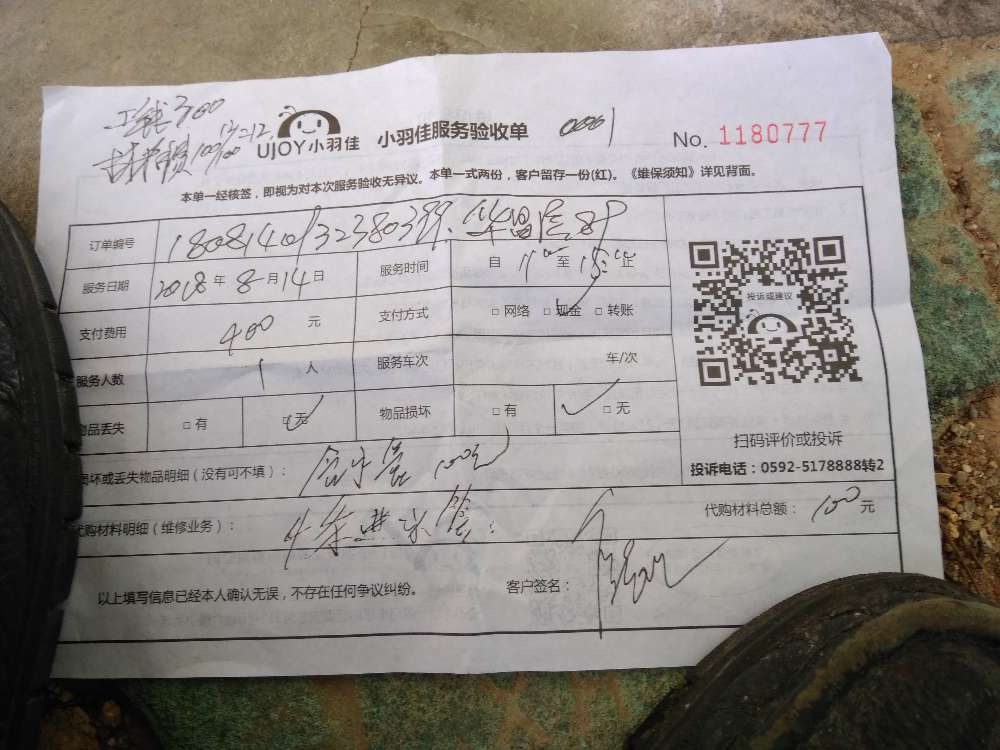 工钱300
UJOY小羽佳 小羽佳服务验收单 No. 1180777
本单一经核签，即视为对本次服务验收无异议。本单一式两份，客户留存一份(红)。《维保须知》详见背面。
订单编号
服务日期 2018年8月14日 服务时间 自 至 止
支付费用 400 元 支付方式 □ 网络 □ 现金 □ 转账
服务人数 1 人 服务车次 车/次
物品丢失 □ 有 □ 无 物品损坏 □ 有 □ 无
投诉或建议
扫码评价或投诉
投诉电话：0592-5178888转2
损坏或丢失物品明细（没有可不填）： 100元
代购材料明细（维修业务）： 代购材料总额： 100 元
以上填写信息已经本人确认无误，不存在任何争议纠纷。 客户签名：